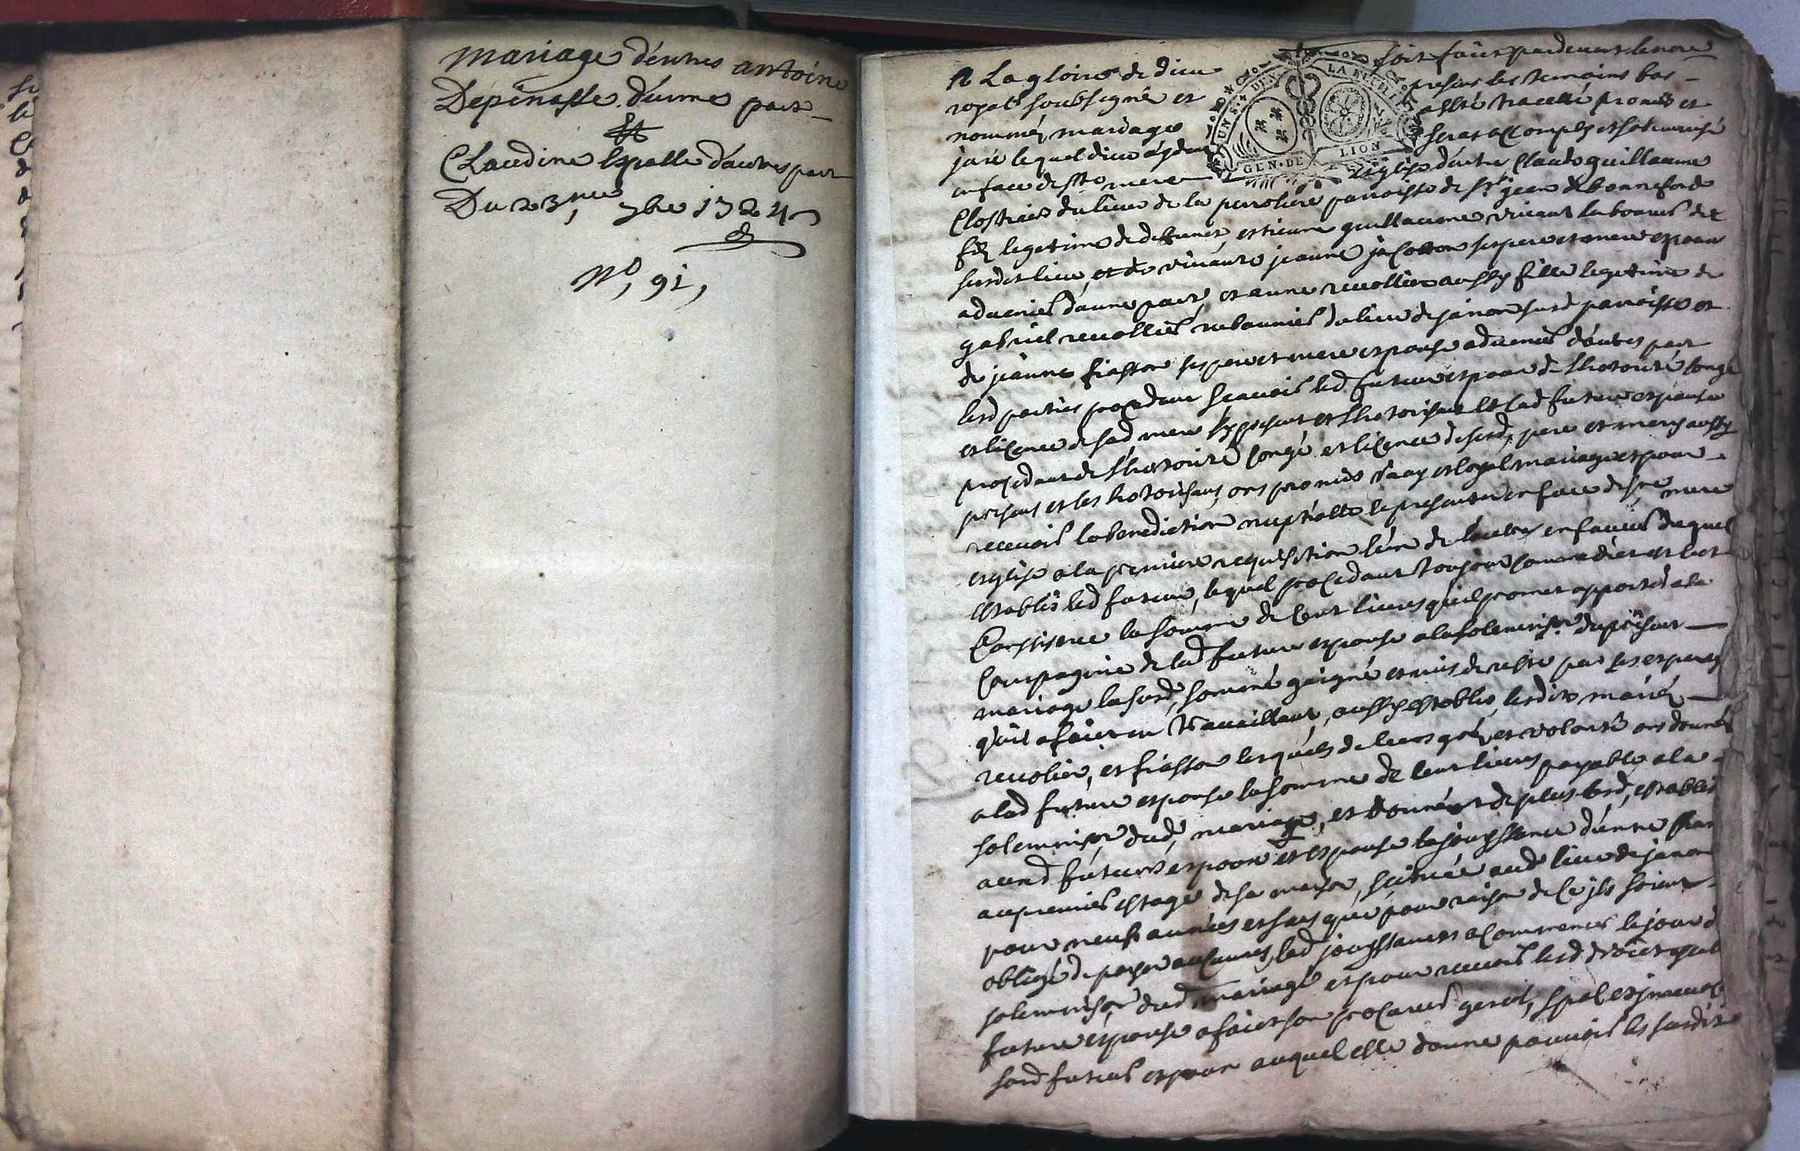 mariage d'entres antoine
Depinasse d'unne part
et
Claudine d'autres part
Du 23me 9bre 1724
N° 91,
A La gloire de dieu soit fait pardevant le nore
royal soubsigné et presens les temoins bas
nommés mariage a esté traccté promis et
juré lequel dieu aydant sera accomply et solennisé
en face de ste mere esglize d'entre Claude guillaume
UN S. DEN LA FEUILLE
GEN. DE LION
du lieu de la paroisse de St jean de bonnefond
fils legitime de deffunct estienne guillaume vivant laboureur de
surdt lieu et de vivante jeanne jacotton ses pere et mere espoux
advenir d'une part, et anne revollier aussy fille legitime de
gabriel revollier du lieu de janon susd parroisse et
de jeanne fiasson ses pere et mere espouse advenir d'autres part
lesd parties procedant scavoir led futur espoux de l'hotorité congé
et licence de sad mere icy presente et l'hotorisant et lad future espouse
procedant de l'hotorité congé et licence de sesd pere et mere aussy
presens et les hotorisant, ont promis vray et loyal mariage et pour
recevoir la benediction nuptialle se presenter en face de ste mere
esglise a la premiere requisition l'un de l'autre en faveur duquel
establis led futur, lequel procedant toujour comme dict est s'est
Constitué la somme de cent livres qu'il promet apporter a la
Compagnie de lad future espouse a la solemnison du present
mariage lasusd somme gaigné et mis de reste par ses espargnes
qu'il a fait en travaillant, aussy establis, lesdits mariés
revolier, et fiasson lesquels de leurs gré, et volonté ont donnés
a lad future espouse la somme de cent livres payable a la
solemnison dud mariage, et donnent de plus lesd, establis
auxd futurs espoux et espouse la jouyssance d'entre
au premier estage de sa maison, scituée aud lieu de janon
pour neufs années et sans que pour raison de ce ils soient
obligé de payer aucunes, lad jouyssance a commencer le jour de
solemnison dud mariage et pour recevoir lesd droits
future espouse a fait son procureur general, special et irrevoc
sond futur espoux auquel elle donne pouvoir les susdits